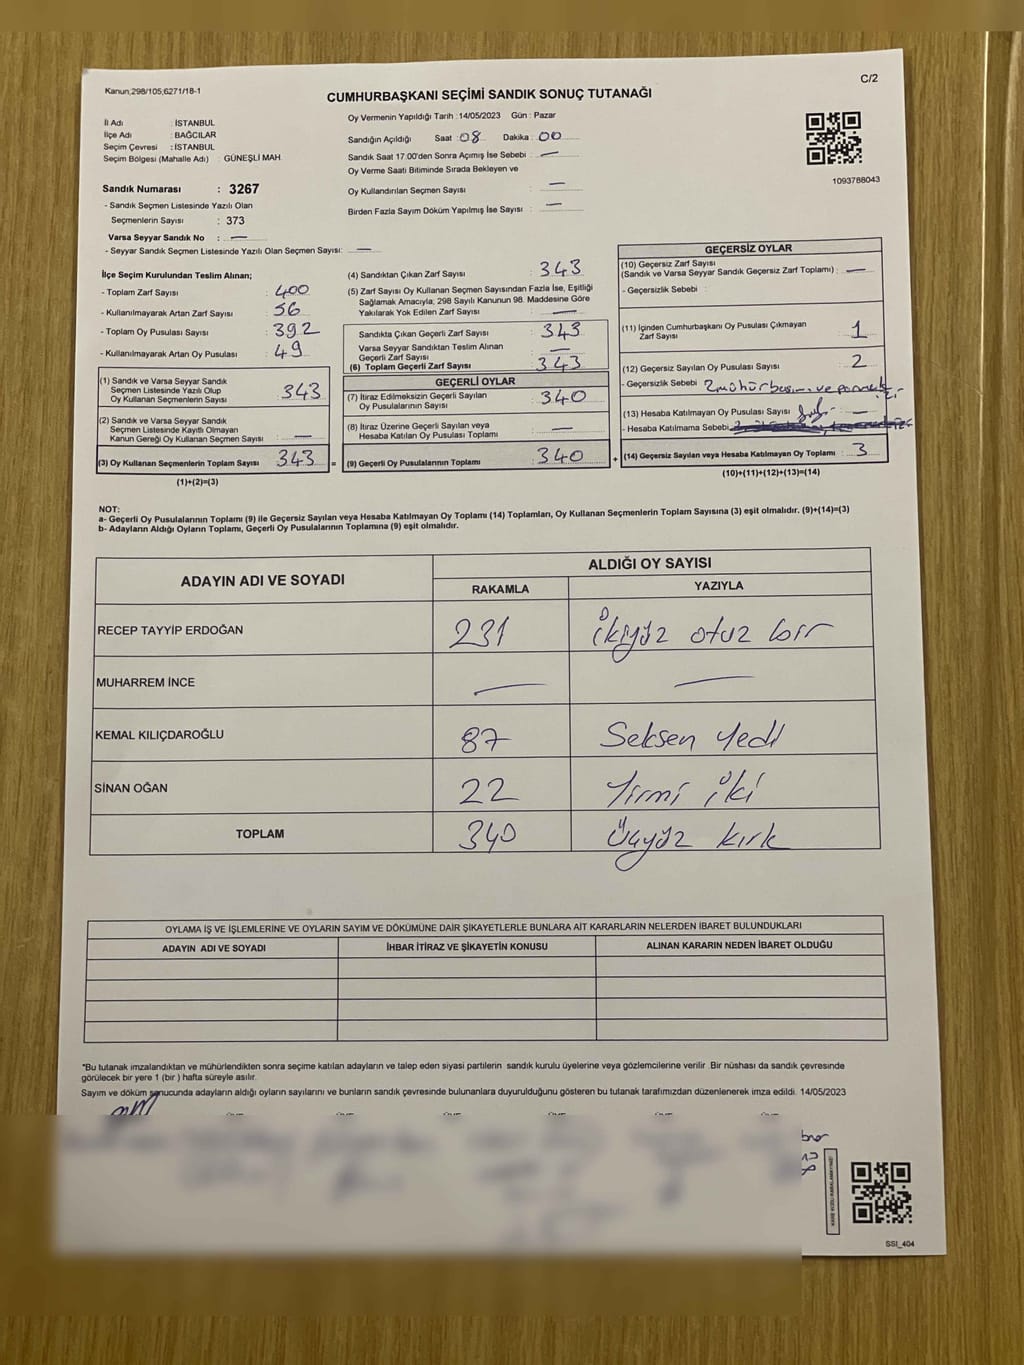 Kanun,298/105;6271/18-1
C/2
CUMHURBAŞKANI SEÇİMİ SANDIK SONUÇ TUTANAĞI
İl Adı : İSTANBUL
İlçe Adı : BAĞCILAR
Seçim Çevresi : İSTANBUL
Seçim Bölgesi (Mahalle Adı) : GÜNEŞLİ MAH.
Sandık Numarası : 3267
- Sandık Seçmen Listesinde Yazılı Olan
Seçmenlerin Sayısı : 373
Varsa Seyyar Sandık No : —
- Seyyar Sandık Seçmen Listesinde Yazılı Olan Seçmen Sayısı: —
Oy Vermenin Yapıldığı Tarih :14/05/2023 Gün : Pazar
Sandığın Açıldığı Saat :08 Dakika :00
Sandık Saat 17.00'den Sonra Açımış İse Sebebi : —
Oy Verme Saati Bitiminde Sırada Bekleyen ve
Oy Kullandırılan Seçmen Sayısı : —
Birden Fazla Sayım Döküm Yapılmış İse Sayısı : —
1093788043
İlçe Seçim Kurulundan Teslim Alınan;
- Toplam Zarf Sayısı : 400
- Kullanılmayarak Artan Zarf Sayısı : 56
- Toplam Oy Pusulası Sayısı : 392
- Kullanılmayarak Artan Oy Pusulası : 49
(1) Sandık ve Varsa Seyyar Sandık
Seçmen Listesinde Yazılı Olup
Oy Kullanan Seçmenlerin Sayısı : 343
(2) Sandık ve Varsa Seyyar Sandık
Seçmen Listesinde Kayıtlı Olmayan
Kanun Gereği Oy Kullanan Seçmen Sayısı : —
(3) Oy Kullanan Seçmenlerin Toplam Sayısı : 343 =
(1)+(2)=(3)
(4) Sandıktan Çıkan Zarf Sayısı : 343
(5) Zarf Sayısı Oy Kullanan Seçmen Sayısından Fazla İse, Eşitliği
Sağlamak Amacıyla; 298 Sayılı Kanunun 98. Maddesine Göre
Yakılarak Yok Edilen Zarf Sayısı : —
Sandıkta Çıkan Geçerli Zarf Sayısı : 343
Varsa Seyyar Sandıktan Teslim Alınan
Geçerli Zarf Sayısı : —
(6) Toplam Geçerli Zarf Sayısı : 343
GEÇERLİ OYLAR
(7) İtiraz Edilmeksizin Geçerli Sayılan
Oy Pusulalarının Sayısı : 340
(8) İtiraz Üzerine Geçerli Sayılan veya
Hesaba Katılan Oy Pusulası Toplamı : —
(9) Geçerli Oy Pusulalarının Toplamı : 340 +
GEÇERSİZ OYLAR
(10) Geçersiz Zarf Sayısı
(Sandık ve Varsa Seyyar Sandık Geçersiz Zarf Toplamı) : —
- Geçersizlik Sebebi :
(11) İçinden Cumhurbaşkanı Oy Pusulası Çıkmayan
Zarf Sayısı : 1
(12) Geçersiz Sayılan Oy Pusulası Sayısı : 2
- Geçersizlik Sebebi
(13) Hesaba Katılmayan Oy Pusulası Sayısı : —
- Hesaba Katılmama Sebebi
(14) Geçersiz Sayılan veya Hesaba Katılmayan Oy Toplamı : 3
(10)+(11)+(12)+(13)=(14)
NOT:
a- Geçerli Oy Pusulalarının Toplamı (9) ile Geçersiz Sayılan veya Hesaba Katılmayan Oy Toplamı (14) Toplamları, Oy Kullanan Seçmenlerin Toplam Sayısına (3) eşit olmalıdır. (9)+(14)=(3)
b- Adayların Aldığı Oyların Toplamı, Geçerli Oy Pusulalarının Toplamına (9) eşit olmalıdır.
ADAYIN ADI VE SOYADI
ALDIĞI OY SAYISI
RAKAMLA YAZIYLA
RECEP TAYYİP ERDOĞAN 231 İkiyüz otuz bir
MUHARREM İNCE — —
KEMAL KILIÇDAROĞLU 87 Seksen Yedi
SİNAN OĞAN 22 Yirmi iki
TOPLAM 340 Üçyüz kırk
OYLAMA İŞ VE İŞLEMLERİNE VE OYLARIN SAYIM VE DÖKÜMÜNE DAİR ŞİKAYETLERLE BUNLARA AİT KARARLARIN NELERDEN İBARET BULUNDUKLARI
ADAYIN ADI VE SOYADI İHBAR İTİRAZ VE ŞİKAYETİN KONUSU ALINAN KARARIN NEDEN İBARET OLDUĞU
*Bu tutanak imzalandıktan ve mühürlendikten sonra seçime katılan adayların ve talep eden siyasi partilerin sandık kurulu üyelerine veya gözlemcilerine verilir. Bir nüshası da sandık çevresinde
görülecek bir yere 1 (bir ) hafta süreyle asılır.
Sayım ve döküm sonucunda adayların aldığı oyların sayılarını ve bunların sandık çevresinde bulunanlara duyurulduğunu gösteren bu tutanak tarafımızdan düzenlenerek imza edildi. 14/05/2023
SSI_404